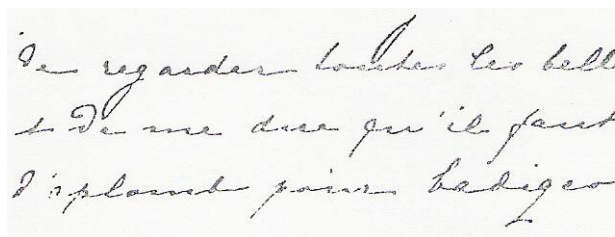 de regarder toutes les bell
et de me dire qu'il faut
d'aplomb pour badigeo